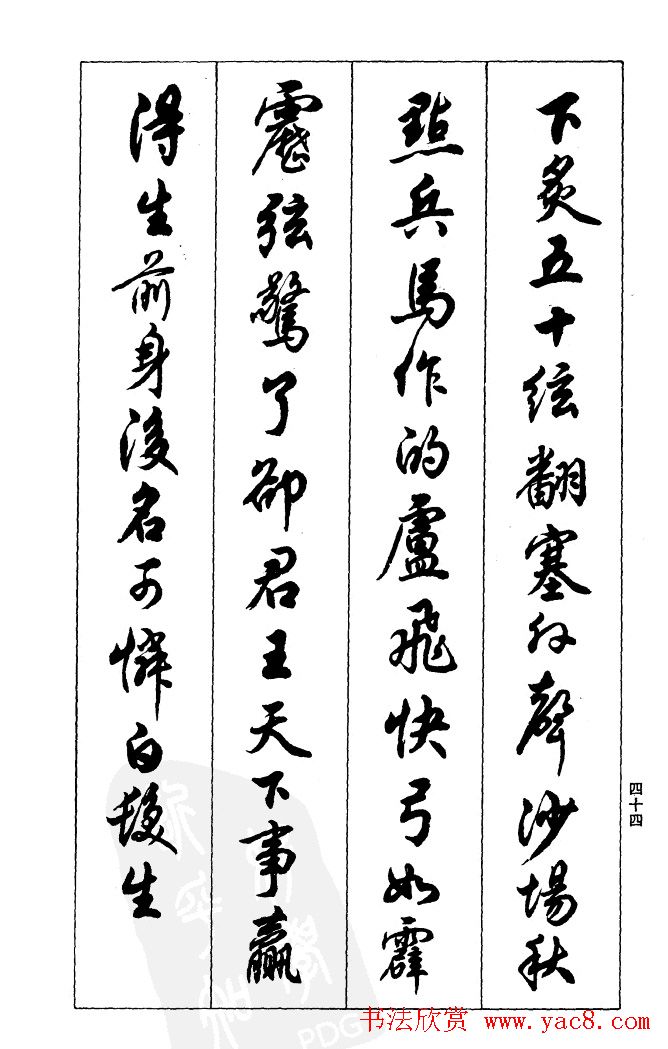 下炙五十弦翻塞外聲沙場秋
點兵馬作的盧飛快弓如霹
靂弦驚了卻君王天下事贏
得生前身後名可憐白髮生
四十四
书法欣赏 www.yac8.com
PDG